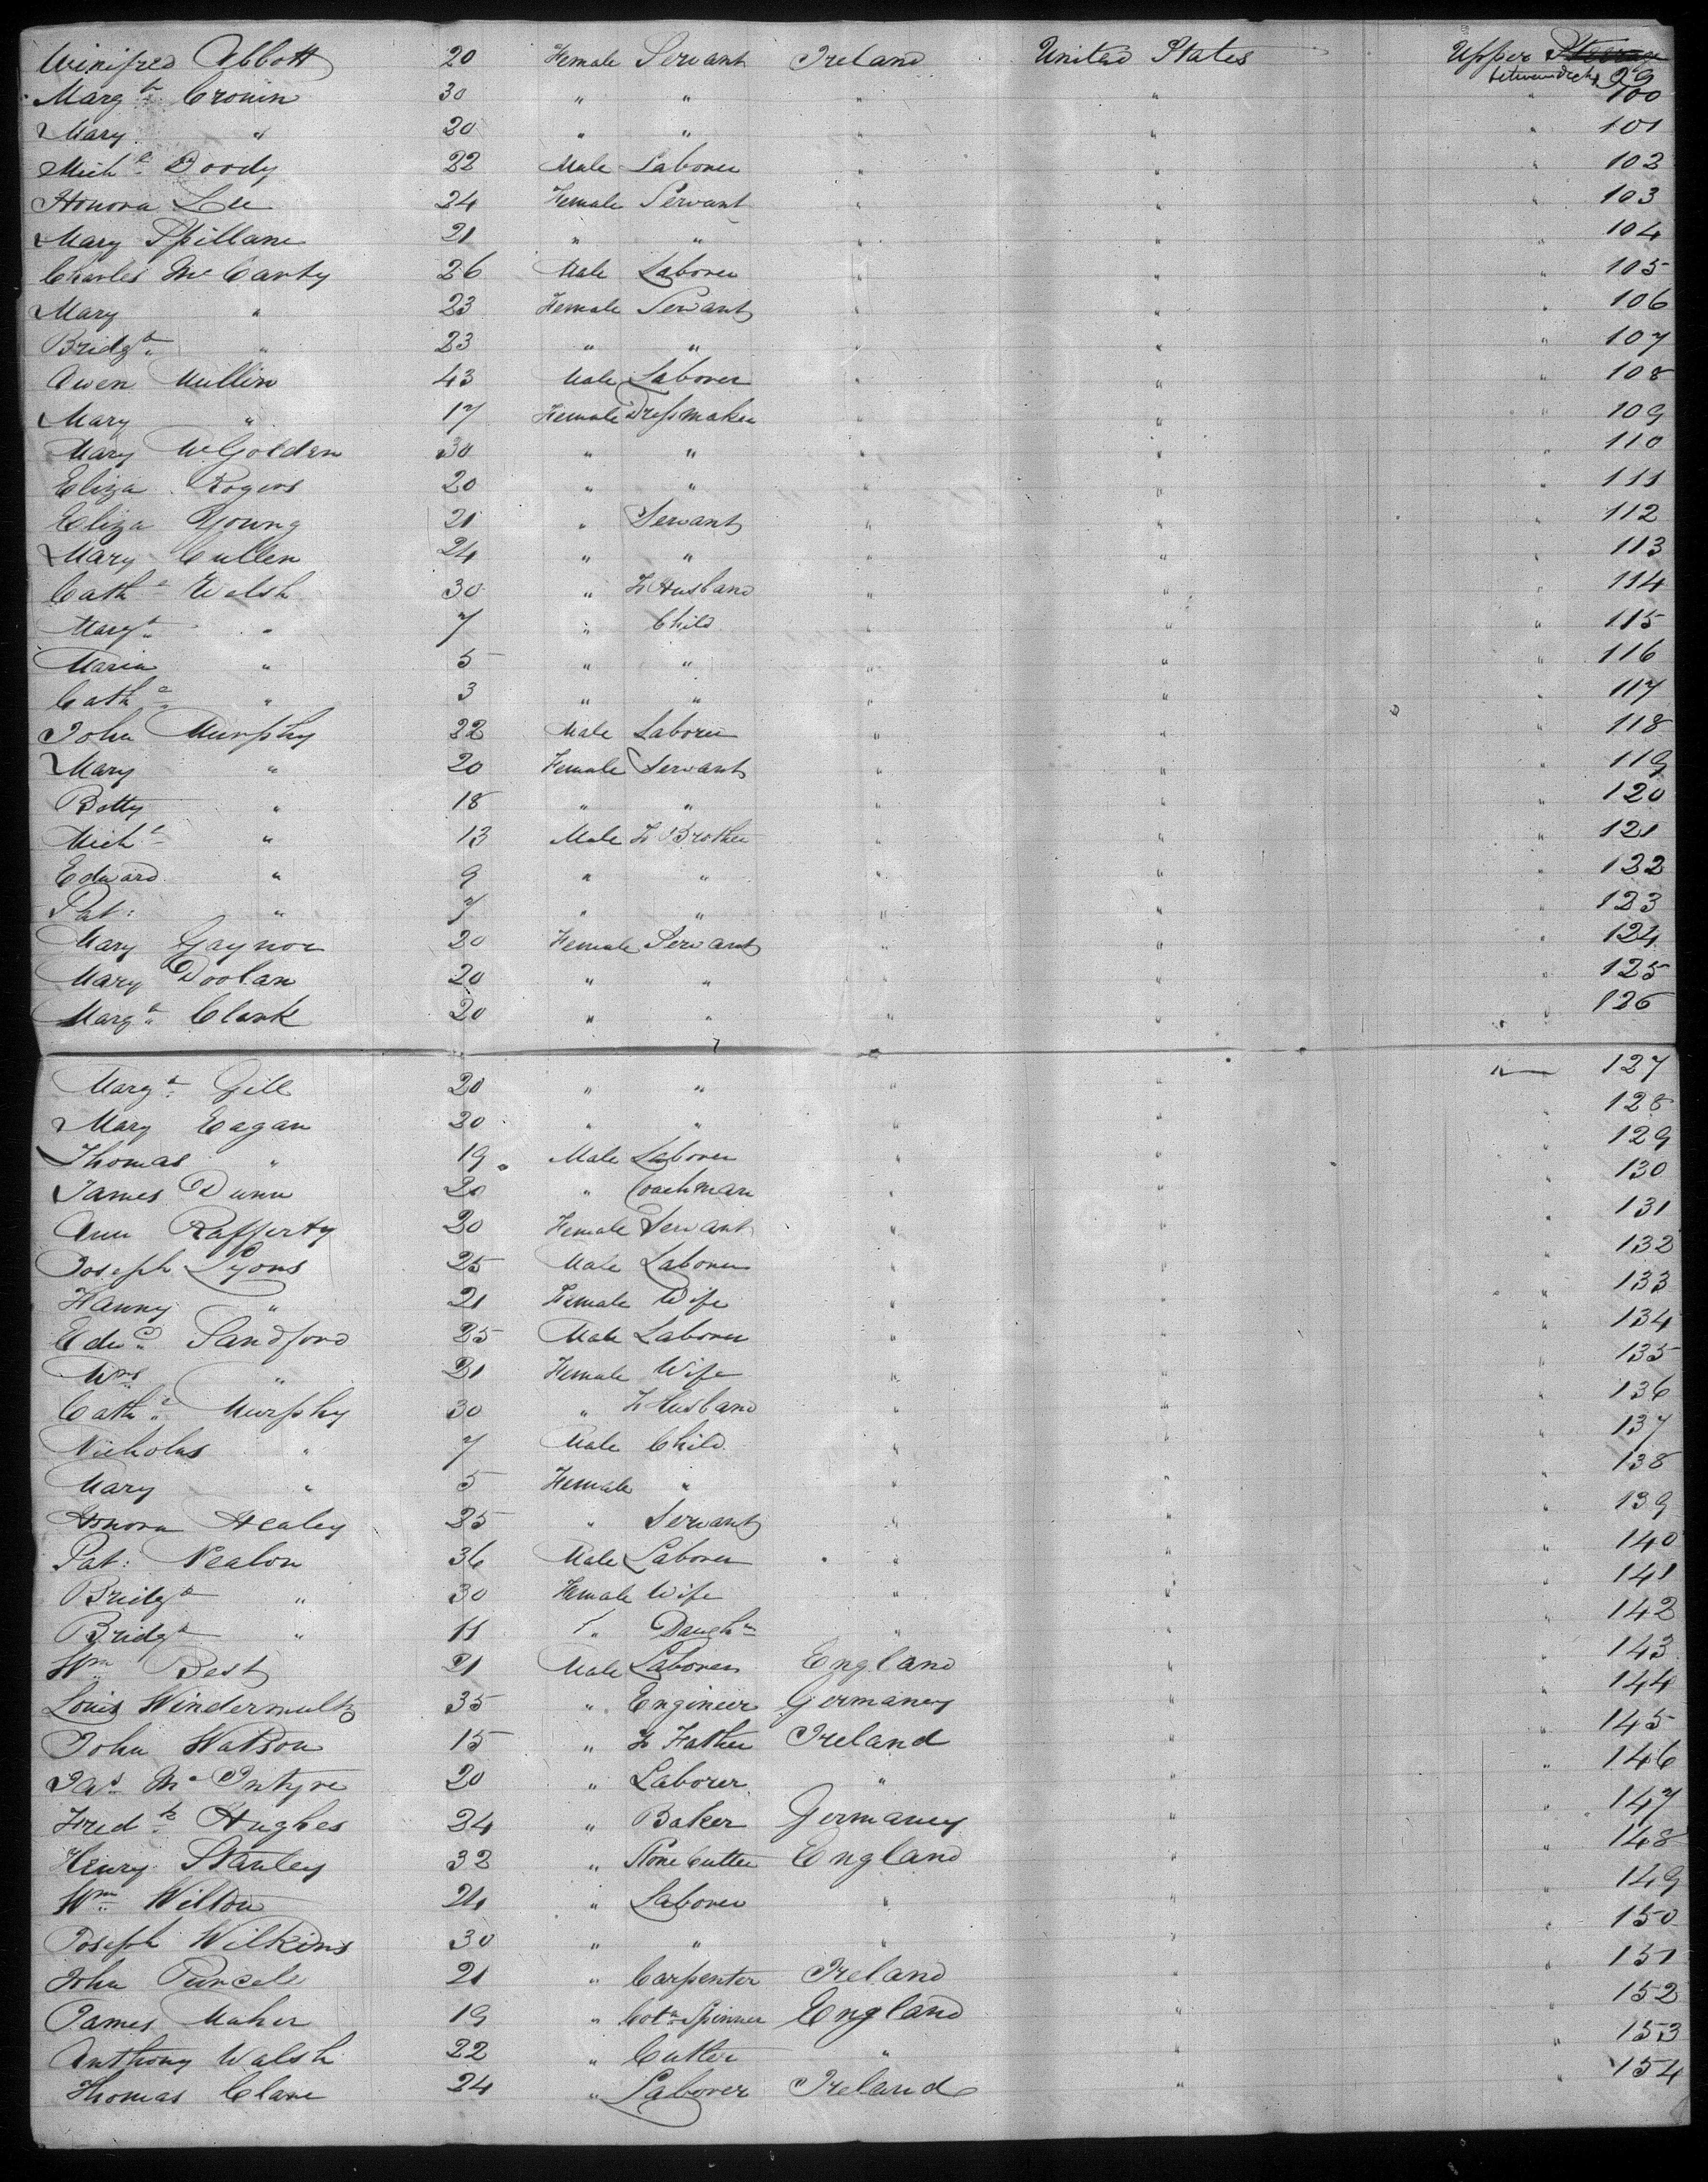 Winifred Abbott 20 Female Servant Ireland United States Upper Steerage
betweendecks 99
Margt Cronin 30 " " " " " 100
Mary " 20 " " " " " 101
Michl Doody 22 Male Laborer " " " 102
Honora Lee 24 Female Servant " " " 103
Mary Spillane 21 " " " " " 104
Charles McCarty 26 Male Laborer " " " 105
Mary " 23 Female Servant " " " 106
Bridgt " 23 " " " " " 107
Owen Mullin 43 Male Laborer " " " 108
Mary " 17 Female Dressmaker " " " 109
Mary McGolden 30 " " " " " 110
Eliza Rogers 20 " " " " " 111
Eliza Young 21 " Servant " " " 112
Mary Cullen 24 " " " " " 113
Cathe Welsh 30 " To Husband " " " 114
Margt " 7 " Child " " " 115
Maria " 5 " " " " " 116
Cathe " 3 " " " " " 117
John Murphy 22 Male Laborer " " " 118
Mary " 20 Female Servant " " " 119
Betty " 18 " " " " " 120
Michl " 13 Male To Brother " " " 121
Edward " 9 " " " " " 122
Pat: " 7 " " " " " 123
Mary Gaynor 20 Female Servant " " " 124
Mary Doolan 20 " " " " " 125
Margt Clark 20 " " " " " 126
Margt Gill 20 " " " " " 127
Mary Eagan 20 " " " " " 128
Thomas " 19 Male Laborer " " " 129
James Dunn 20 " Coachman " " " 130
Ann Rafferty 20 Female Servant " " " 131
Joseph Lyons 25 Male Laborer " " " 132
Hanny " 21 Female Wife " " " 133
Edwd Sandford 25 Male Laborer " " " 134
Mrs " 21 Female Wife " " " 135
Cathe Murphy 30 " To Husband " " " 136
Nicholas " 7 Male Child " " " 137
Mary " 5 Female " " " " 138
Honora Healey 25 " Servant " " " 139
Pat: Nealon 36 Male Laborer " " " 140
Bridgt " 30 Female Wife " " " 141
Bridgt " 11 " Daughtr " " " 142
Wm Best 21 Male Laborer England " " 143
Louis Windermultz 35 " Engineer Germany " " 144
John Watson 15 " To Father Ireland " " 145
Jas McIntyre 20 " Laborer " " " 146
Fredk Hughes 24 " Baker Germany " " 147
Henry Stanley 32 " Stone Cutter England " " 148
Wm Wilton 21 " Laborer " " " 149
Joseph Wilkins 30 " " " " " 150
John Purcell 21 " Carpenter Ireland " " 151
James Maher 19 " Cotn Spinner England " " 152
Anthony Walsh 22 " Cutler " " " 153
Thomas Clare 24 " Laborer Ireland " " 154